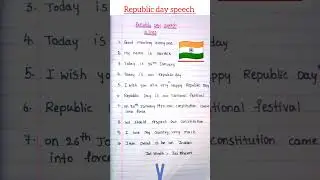 Republic day speech
Republic Day Speech
10 lines
1. Good morning everyone
2. My name is
3. Today is 26th January
4. Today is our Republic day
5. I wish you all a very happy Republic Day
6. Republic Day is our national festival
7. on 26th January 1950 our constitution came
into force
8. We should respect our constitution
9. I love my country very much
10. I am proud to be an Indian
Jai Hind - Jai Bharat
3. Today is
4. Today is
5. I wish y
6. Republic
7. on 26th Jo
into
ppy Republic Day
tional festival
constitution came